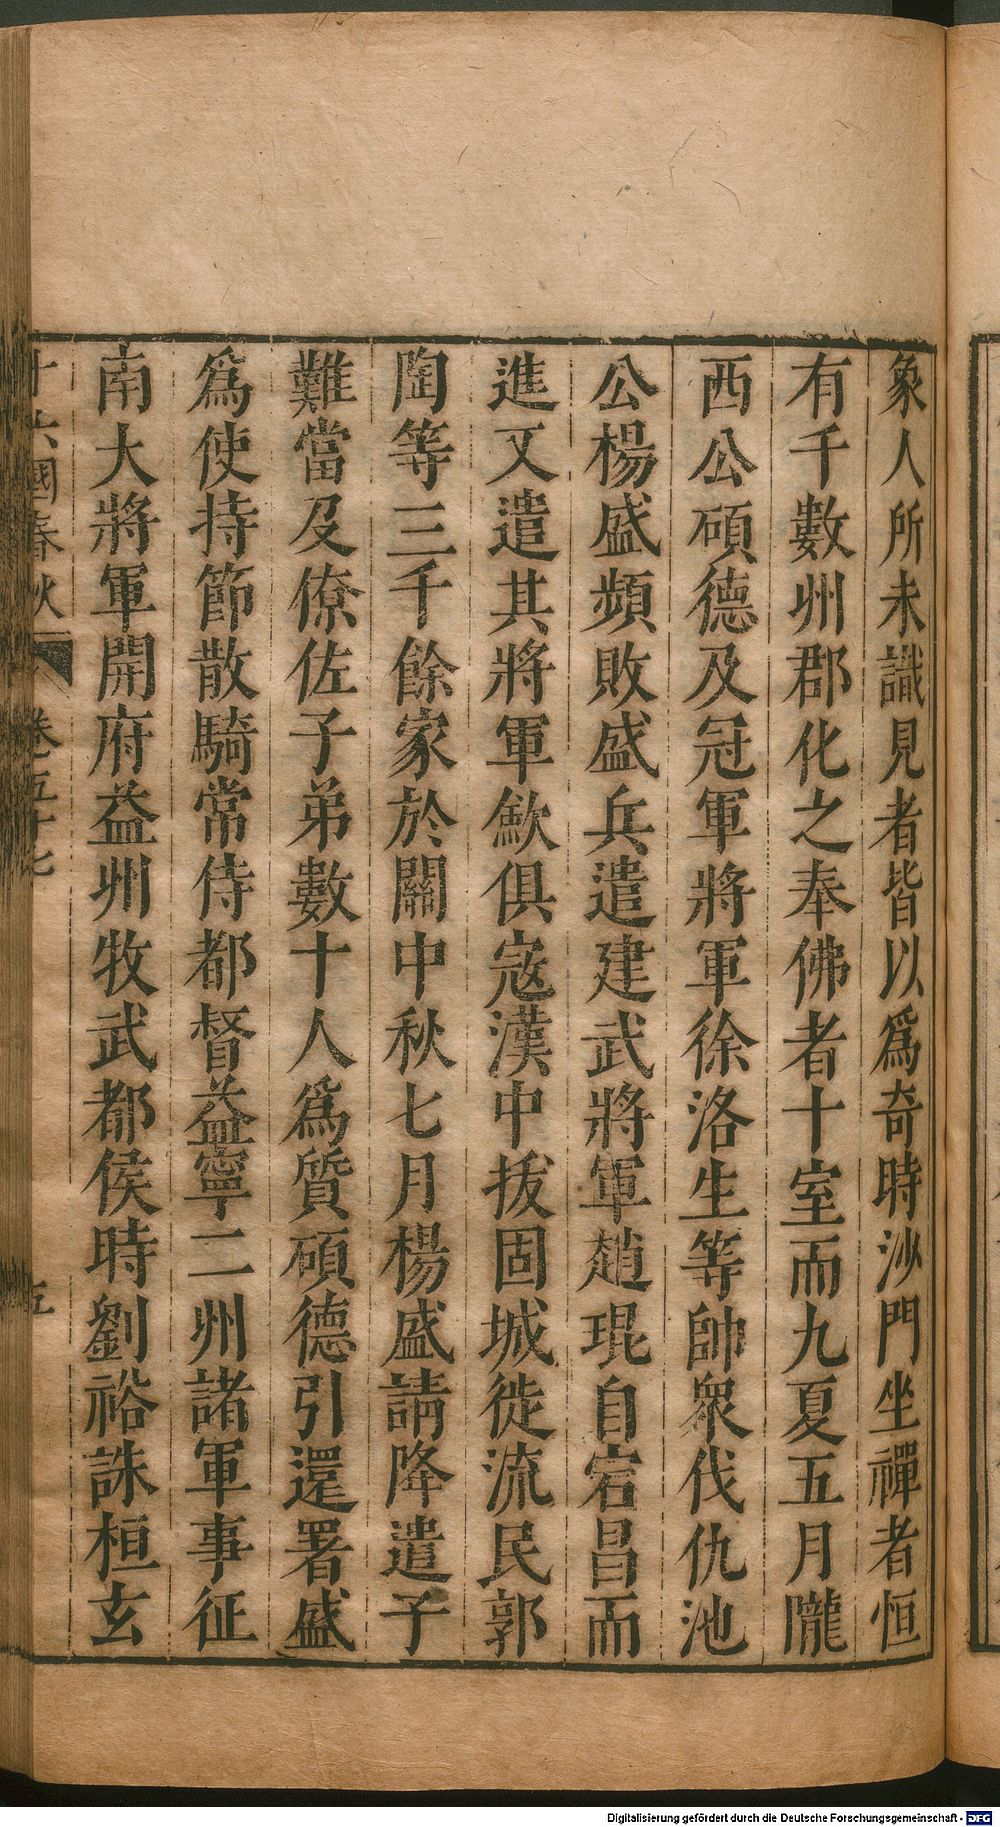 象人所未識見者皆以爲奇時沙門坐禪者恒
有千數州郡化之奉佛者十室而九夏五月隴
西公碩德及冠軍將軍徐洛生等帥衆伐仇池
公楊盛頻敗盛兵遣建武將軍趙琨自宕昌而
進又遣其將軍歛俱寇漢中拔固城徙流民郭
陶等三千餘家於關中秋七月楊盛請降遣子
難當及僚佐子弟數十人爲質碩德引還署盛
爲使持節散騎常侍都督益寧二州諸軍事征
南大將軍開府益州牧武都侯時劉裕誅桓玄
十六國春秋 卷五十七 五
Digitalisierung gefördert durch die Deutsche Forschungsgemeinschaft - DFG